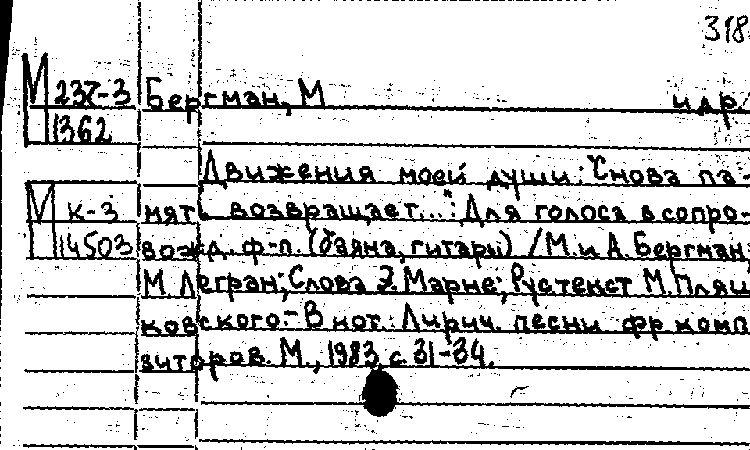 318
М 237-3 Бергман, М и др.
1362
Движения моей души: "Снова па-
М к-3 мять возвращает...": Для голоса в сопро-
14503 вожд. ф-п. (баяна, гитары) / М. и А. Бергман,
М. Легран; Слова Э. Марне; Рус текст М. Пляц
ковского.- В нот.: Лирич. песни фр комп
зиторов. М., 1983, с 31-34.